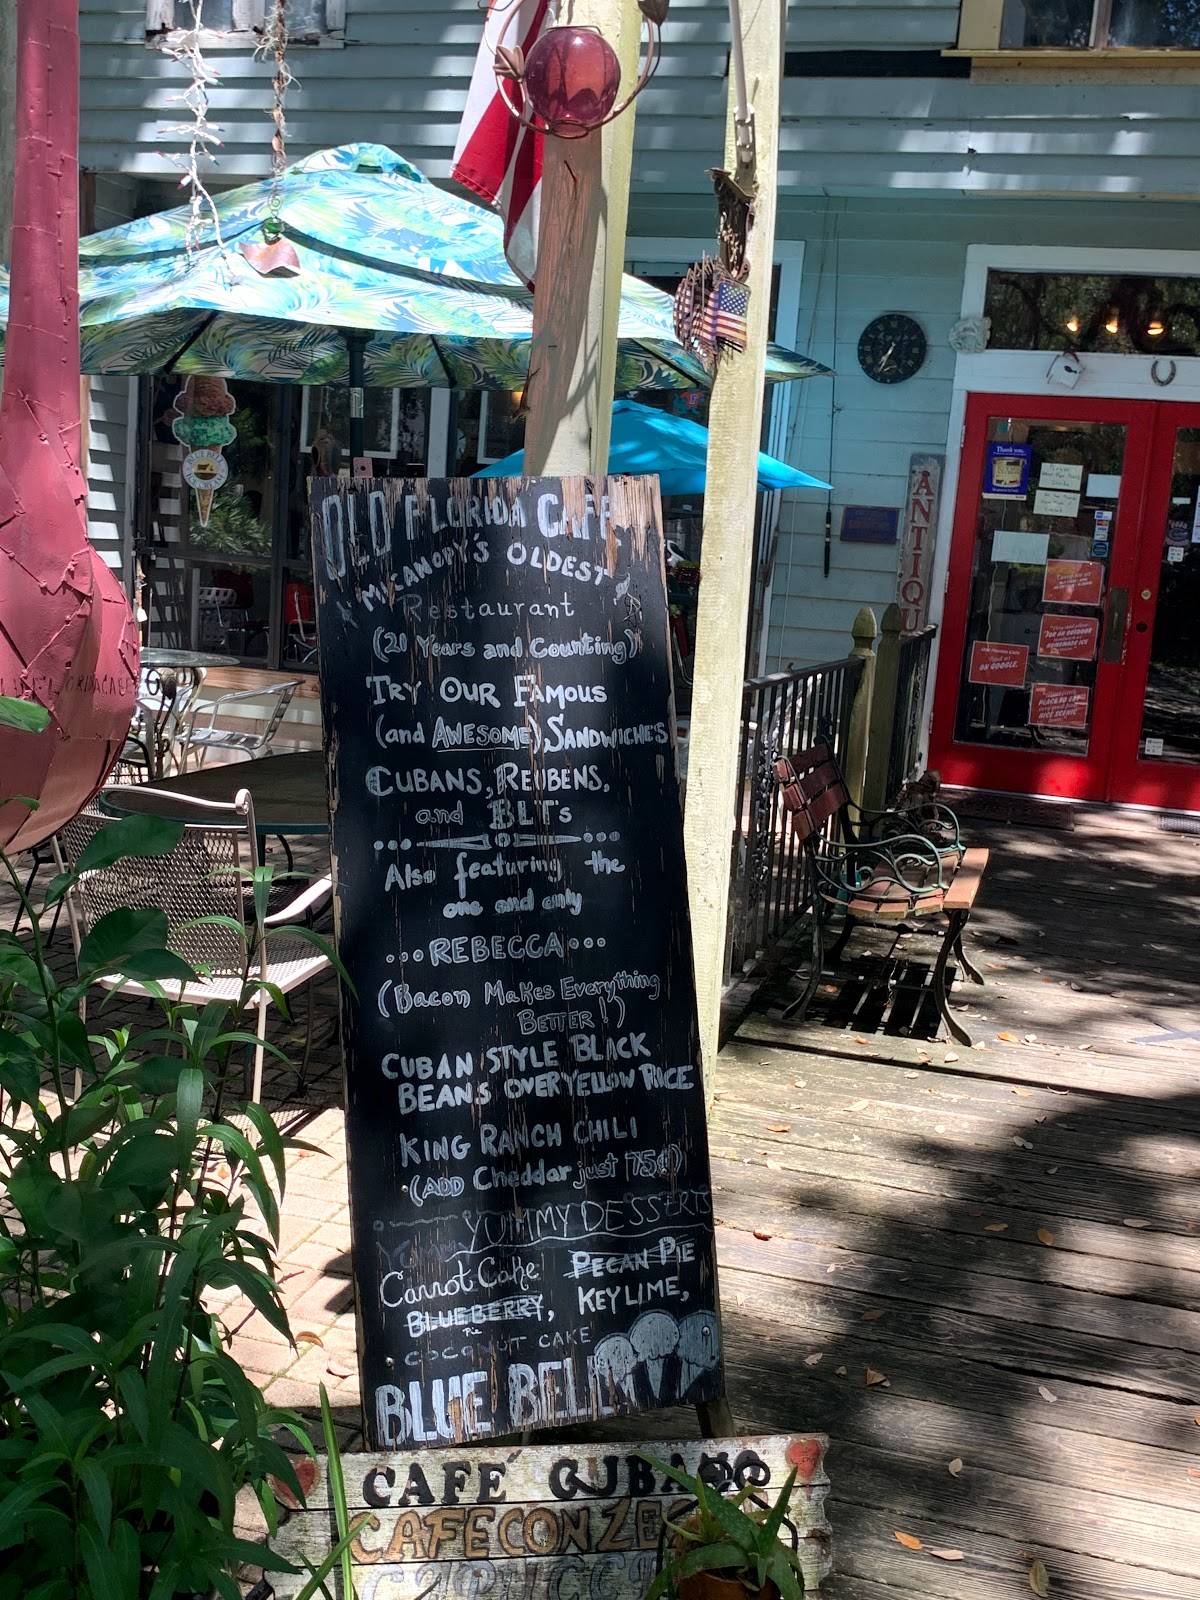 OLD FLORIDA CAFE
MICANOPY'S OLDEST
Restaurant
(21 Years and Counting)
TRY OUR FAMOUS
(and AWESOME) SANDWICHE'S
CUBANS, REUBENS,
and BLT's
Also featuring the
one and only
...REBECCA...
(Bacon Makes Everything
BETTER!)
CUBAN STYLE BLACK
BEANS OVER YELLOW RICE
KING RANCH CHILI
(ADD Cheddar just 75¢)
YUMMY DESSERTS
Carrot Cake PECAN PIE
BLUEBERRY, KEY LIME,
Pie
COCONUT CAKE
BLUE BELL
CAFÉ CUBANO
CAFE CON
ANTIQU
Thank you.
FOR AN OUTDOOR
HOMEMADE
ON GOOGLE.
PLACE TO EAT
NICE SCENIC